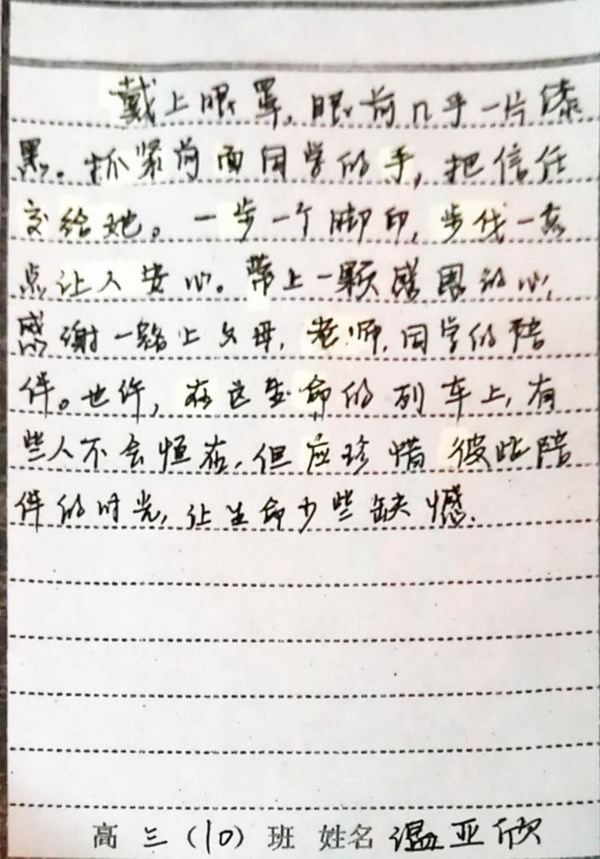 戴上眼罩,眼前几乎一片漆
黑。抓紧前面同学的手,把信任
交给她。一步一个脚印,步伐一致
点让人安心。带上一颗感恩的心,
感谢一路上父母,老师,同学的陪
伴。也许,在这生命的列车上,有
些人不会恒在,但应珍惜彼此陪
伴的时光,让生命少些缺憾.
高三(10)班 姓名 温亚欣